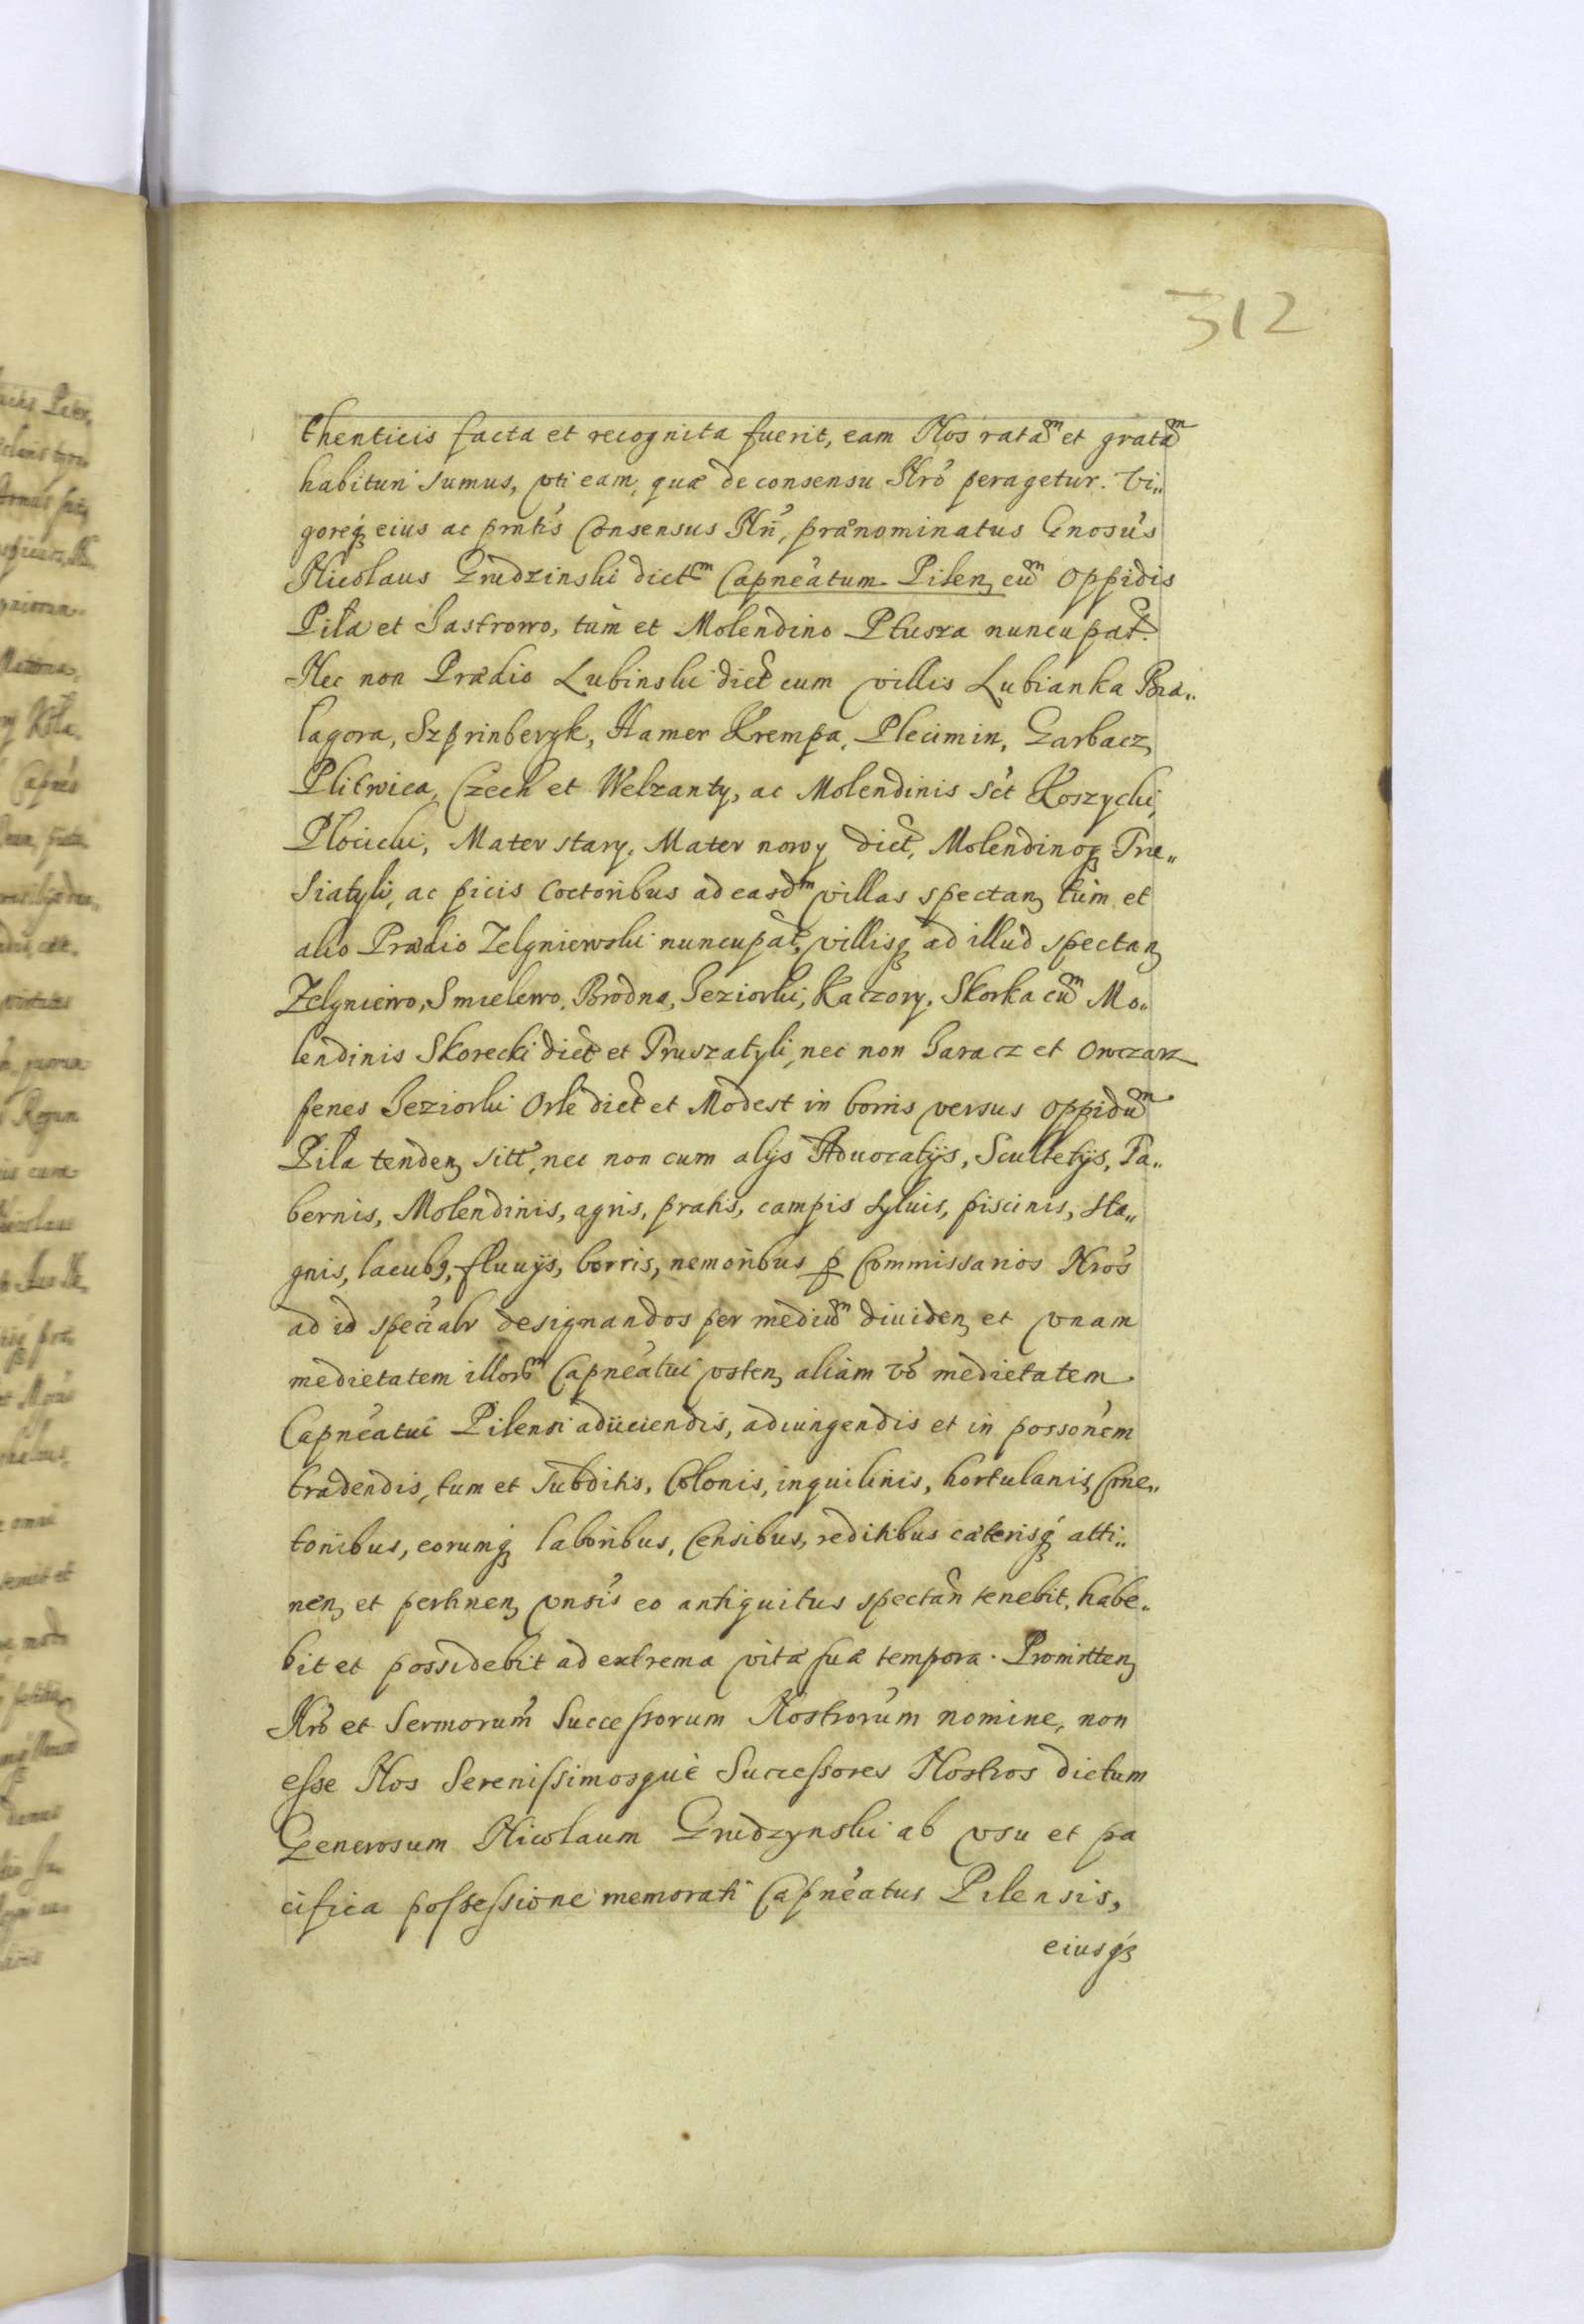 312
thenticis facta et recognita fuerit, eam Nos ratam et gratam
habituri sumus, vti eam, quæ de consensu Nrō peragetur. Vi„
goreq́ eius ac prntis Consensus Nri, prænominatus Gnosus
Nicolaus Grudzinski dictm Capneatum Pilen, cum Oppidis
Pila et Jastrowo, tum et Molendino Ptusza nuncupat.
Nec non Prædio Lubinski dict cum villis Lubianka Bia„
lagora, Szprinbergk, Hamer Krempa, Plecimin, Garbacz,
Plitwica, Czech et Welzanty, ac Molendinis sct Koszycki,
Plocicki, Mater stary, Mater nowy dict, Molendinoq Pru„
siatyli, ac picis coctoribus ad easdm villas spectan, tum et
alio Prædio Zelgniewski nuncupat, villisq ad illud spectan,
Zelgniewo, Smielewo, Brodna, Jeziorki, Kaczory, Skorka cum Mo„
lendinis Skorecki dict et Pruszatyli, nec non Garacz et Owczarz
penes Jeziorki Orle dict et Modest in borris versus Oppidum
Pila tenden, sitt, nec non cum alijs Aduocatijs, Scultetijs, Ta„
bernis, Molendinis, agris, pratis, campis syluis, piscinis, sta„
gnis, lacubq, fluuijs, borris, nemoribus p Commissarios Nros
ad id specialr designandos per medium diuiden, et vnam
medietatem illorum Capneatui vsten, aliam vō medietatem
Capneatui Pilensi adijciendis, adiungendis et in possonem
tradendis, tum et subditis, Colonis, inquilinis, hortulanis, Cme„
tonibus, eorumq laboribus, Censibus, reditibus cæterisq́ atti„
nen, et pertinen, vnsis eo antiquitus spectan tenebit, habe„
bit et possidebit ad extrema vitæ suæ tempora. Promitten,
Nrō et Sermorum Successorum Nostrorum nomine, non
esse Nos Serenissimosque Successores Nostros dictum
Generosum Nicolaum Grudzynski ab vsu et pa
cifica possessione memorati Capneatus Pilensis,
eiusq́